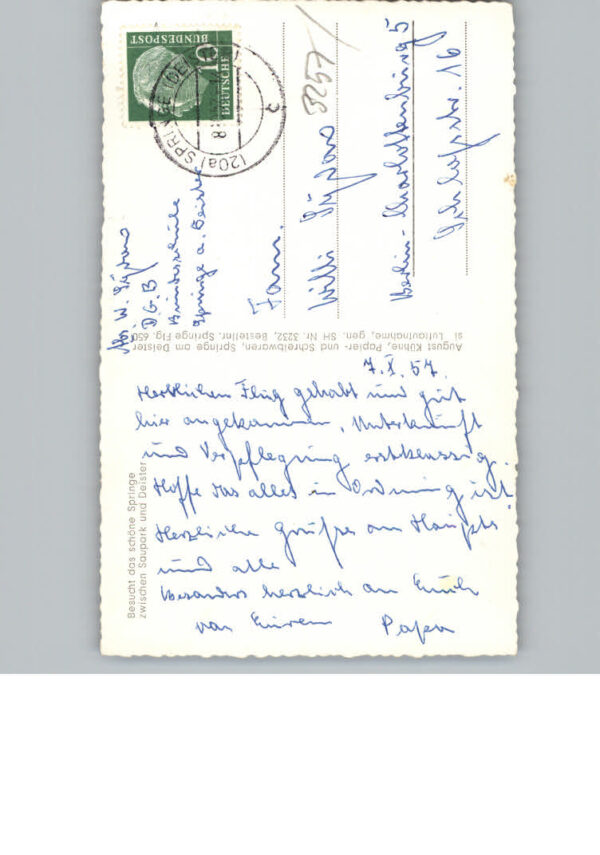 DEUTSCHE
BUNDESPOST
10
(20a) SPRINGE (DEISTER)
8
c
3257
D.G.B
Bundesschule
Springe a. Deister
Fam.
Willi
Berlin-Charlottenburg 5
16
August Kühne, Papier- und Schreibwaren, Springe am Deister
si Luftaufnahme, gen. SH Nr. 3232, Besteller. Springe Flg. 650
Besucht das schöne Springe
zwischen Saupark und Deister
7.X.57.
Herrlichen Flug gehabt und gut
hier angekommen, Unterkunft
und Verpflegung erstklassig.
Hoffe das alles in Ordnung ist.
Herzliche Grüße an
und alle
besonders herzlich an Euch
von Eurem Papa